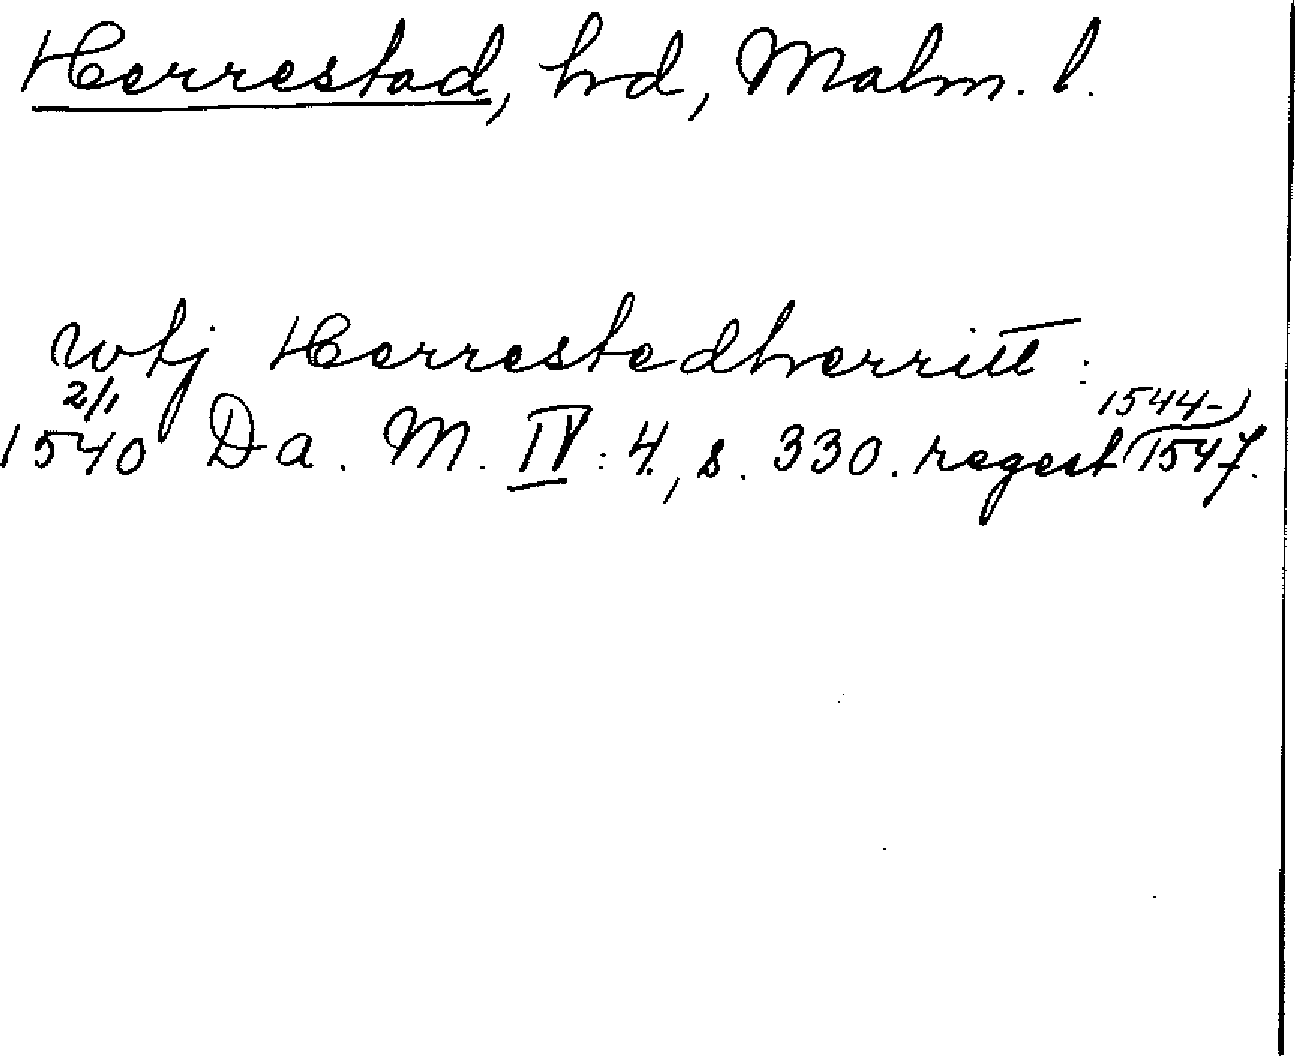 Herrestad, hd, Malm. l.
vtj Herrestedherritt :
2/1
1540 Da. M. IV : 4, s. 330. regest 1544-1547.